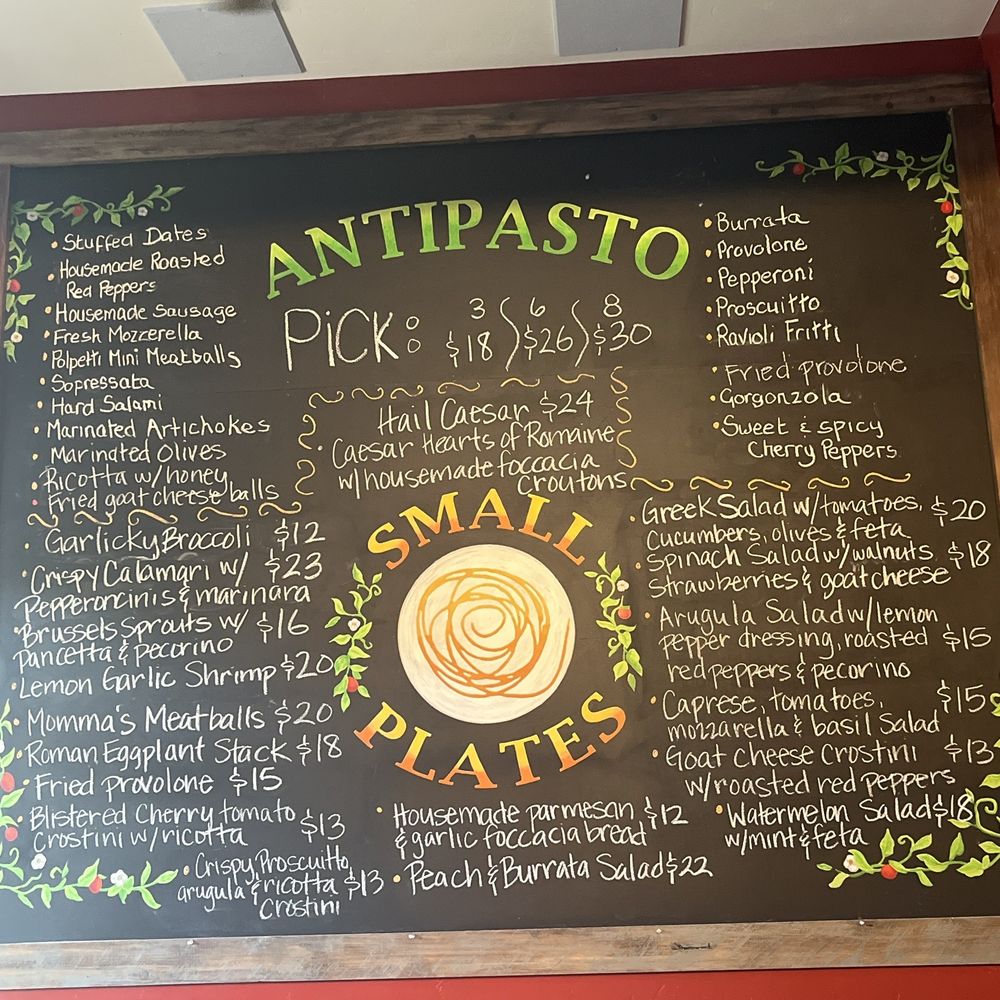 ANTIPASTO
PiCK:
3 6 8
$18 $26 $30
• Stuffed Dates
• Housemade Roasted
Red Peppers
• Housemade Sausage
• Fresh Mozzerella
• Polpetti Mini Meatballs
• Sopressata
• Hard Salami
• Marinated Artichokes
• Marinated Olives
• Ricotta w/honey
• Fried goat cheese balls
• Burrata
• Provolone
• Pepperoni
• Proscuitto
• Ravioli Fritti
• Fried provolone
• Gorgonzola
• Sweet & spicy
Cherry Peppers
Hail Caesar $24
• Caesar Hearts of Romaine
w/housemade foccacia
croutons
SMALL
PLATES
• Garlicky Broccoli $12
• Crispy Calamari w/ $23
Pepperoncinis & marinara
• Brussels Sprouts w/ $16
pancetta & pecorino
• Lemon Garlic Shrimp $20
• Momma's Meatballs $20
• Roman Eggplant Stack $18
• Fried provolone $15
• Blistered Cherry tomato
Crostini w/ricotta $13
• Crispy Proscuitto,
arugula & ricotta $13
Crostini
• Housemade parmesan $12
& garlic foccacia bread
• Peach & Burrata Salad $22
• Greek Salad w/tomatoes, $20
cucumbers, olives & feta
• Spinach Salad w/walnuts $18
Strawberries & goat cheese
• Arugula Salad w/lemon
pepper dressing, roasted $15
red peppers & pecorino
• Caprese, tomatoes, $15
mozzarella & basil Salad
• Goat Cheese Crostini $13
w/roasted red peppers
• Watermelon Salad $18
w/mint & feta